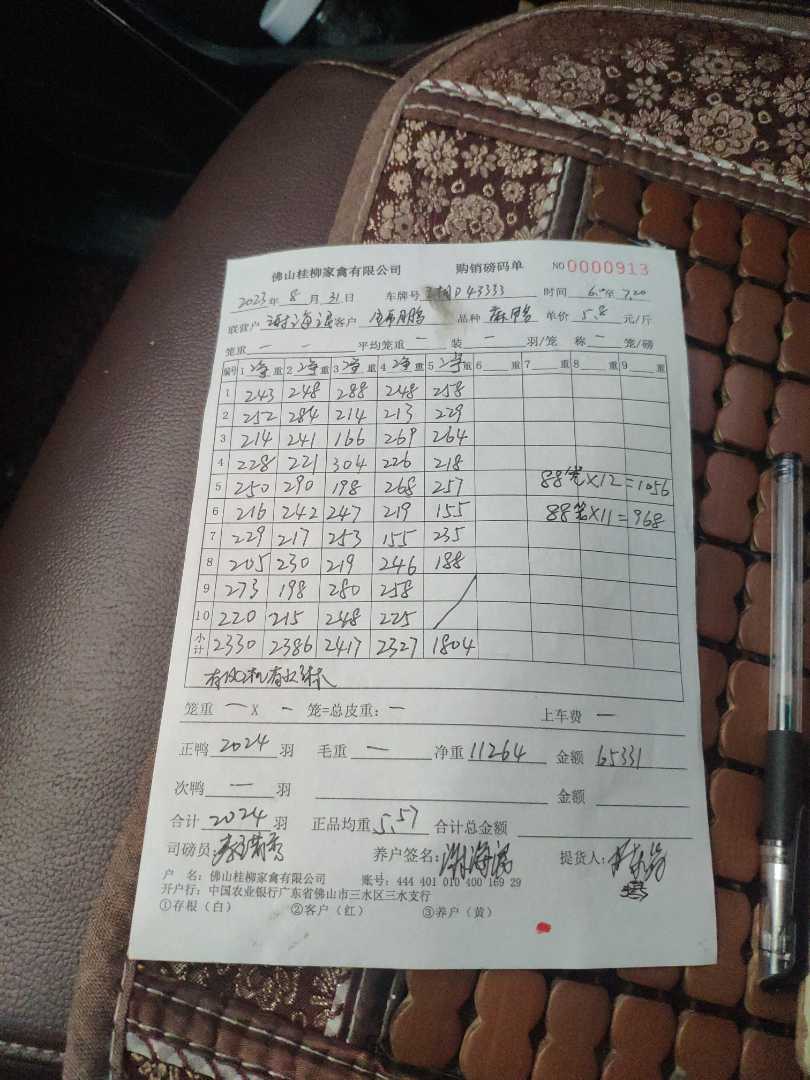 佛山桂柳家禽有限公司 购销磅码单 NO 0000913
2023年 8月 31日 车牌号 D43333 时间 6.00至7.20
联营户 谢海滨 客户 品种 麻鸭 单价 5.8 元/斤
笼重 — — 平均笼重 — 装 — 羽/笼 称 — 笼/磅
编号 1 净重 2 净重 3 净重 4 净重 5 净重 6 重 7 重 8 重 9 重
1 243 248 288 248 258
2 252 284 214 213 229
3 214 241 166 269 264
4 228 221 304 226 218
5 250 290 198 268 257 88笼×12=1056
6 216 242 247 219 155 88笼×11=968
7 229 217 253 155 235
8 205 230 219 246 188
9 273 198 280 258
10 220 215 248 225
小计 2330 2386 2417 2327 1804
笼重 — X — 笼=总皮重: — 上车费 —
正鸭 2024 羽 毛重 — 净重 11264 金额 65331
次鸭 — 羽 金额
合计 2024 羽 正品均重 5.57 合计总金额
司磅员: 养户签名: 谢海滨 提货人:
户 名: 佛山桂柳家禽有限公司 账号: 444 401 010 400 169 29
开户行: 中国农业银行广东省佛山市三水区三水支行
①存根（白） ②客户（红） ③养户（黄）